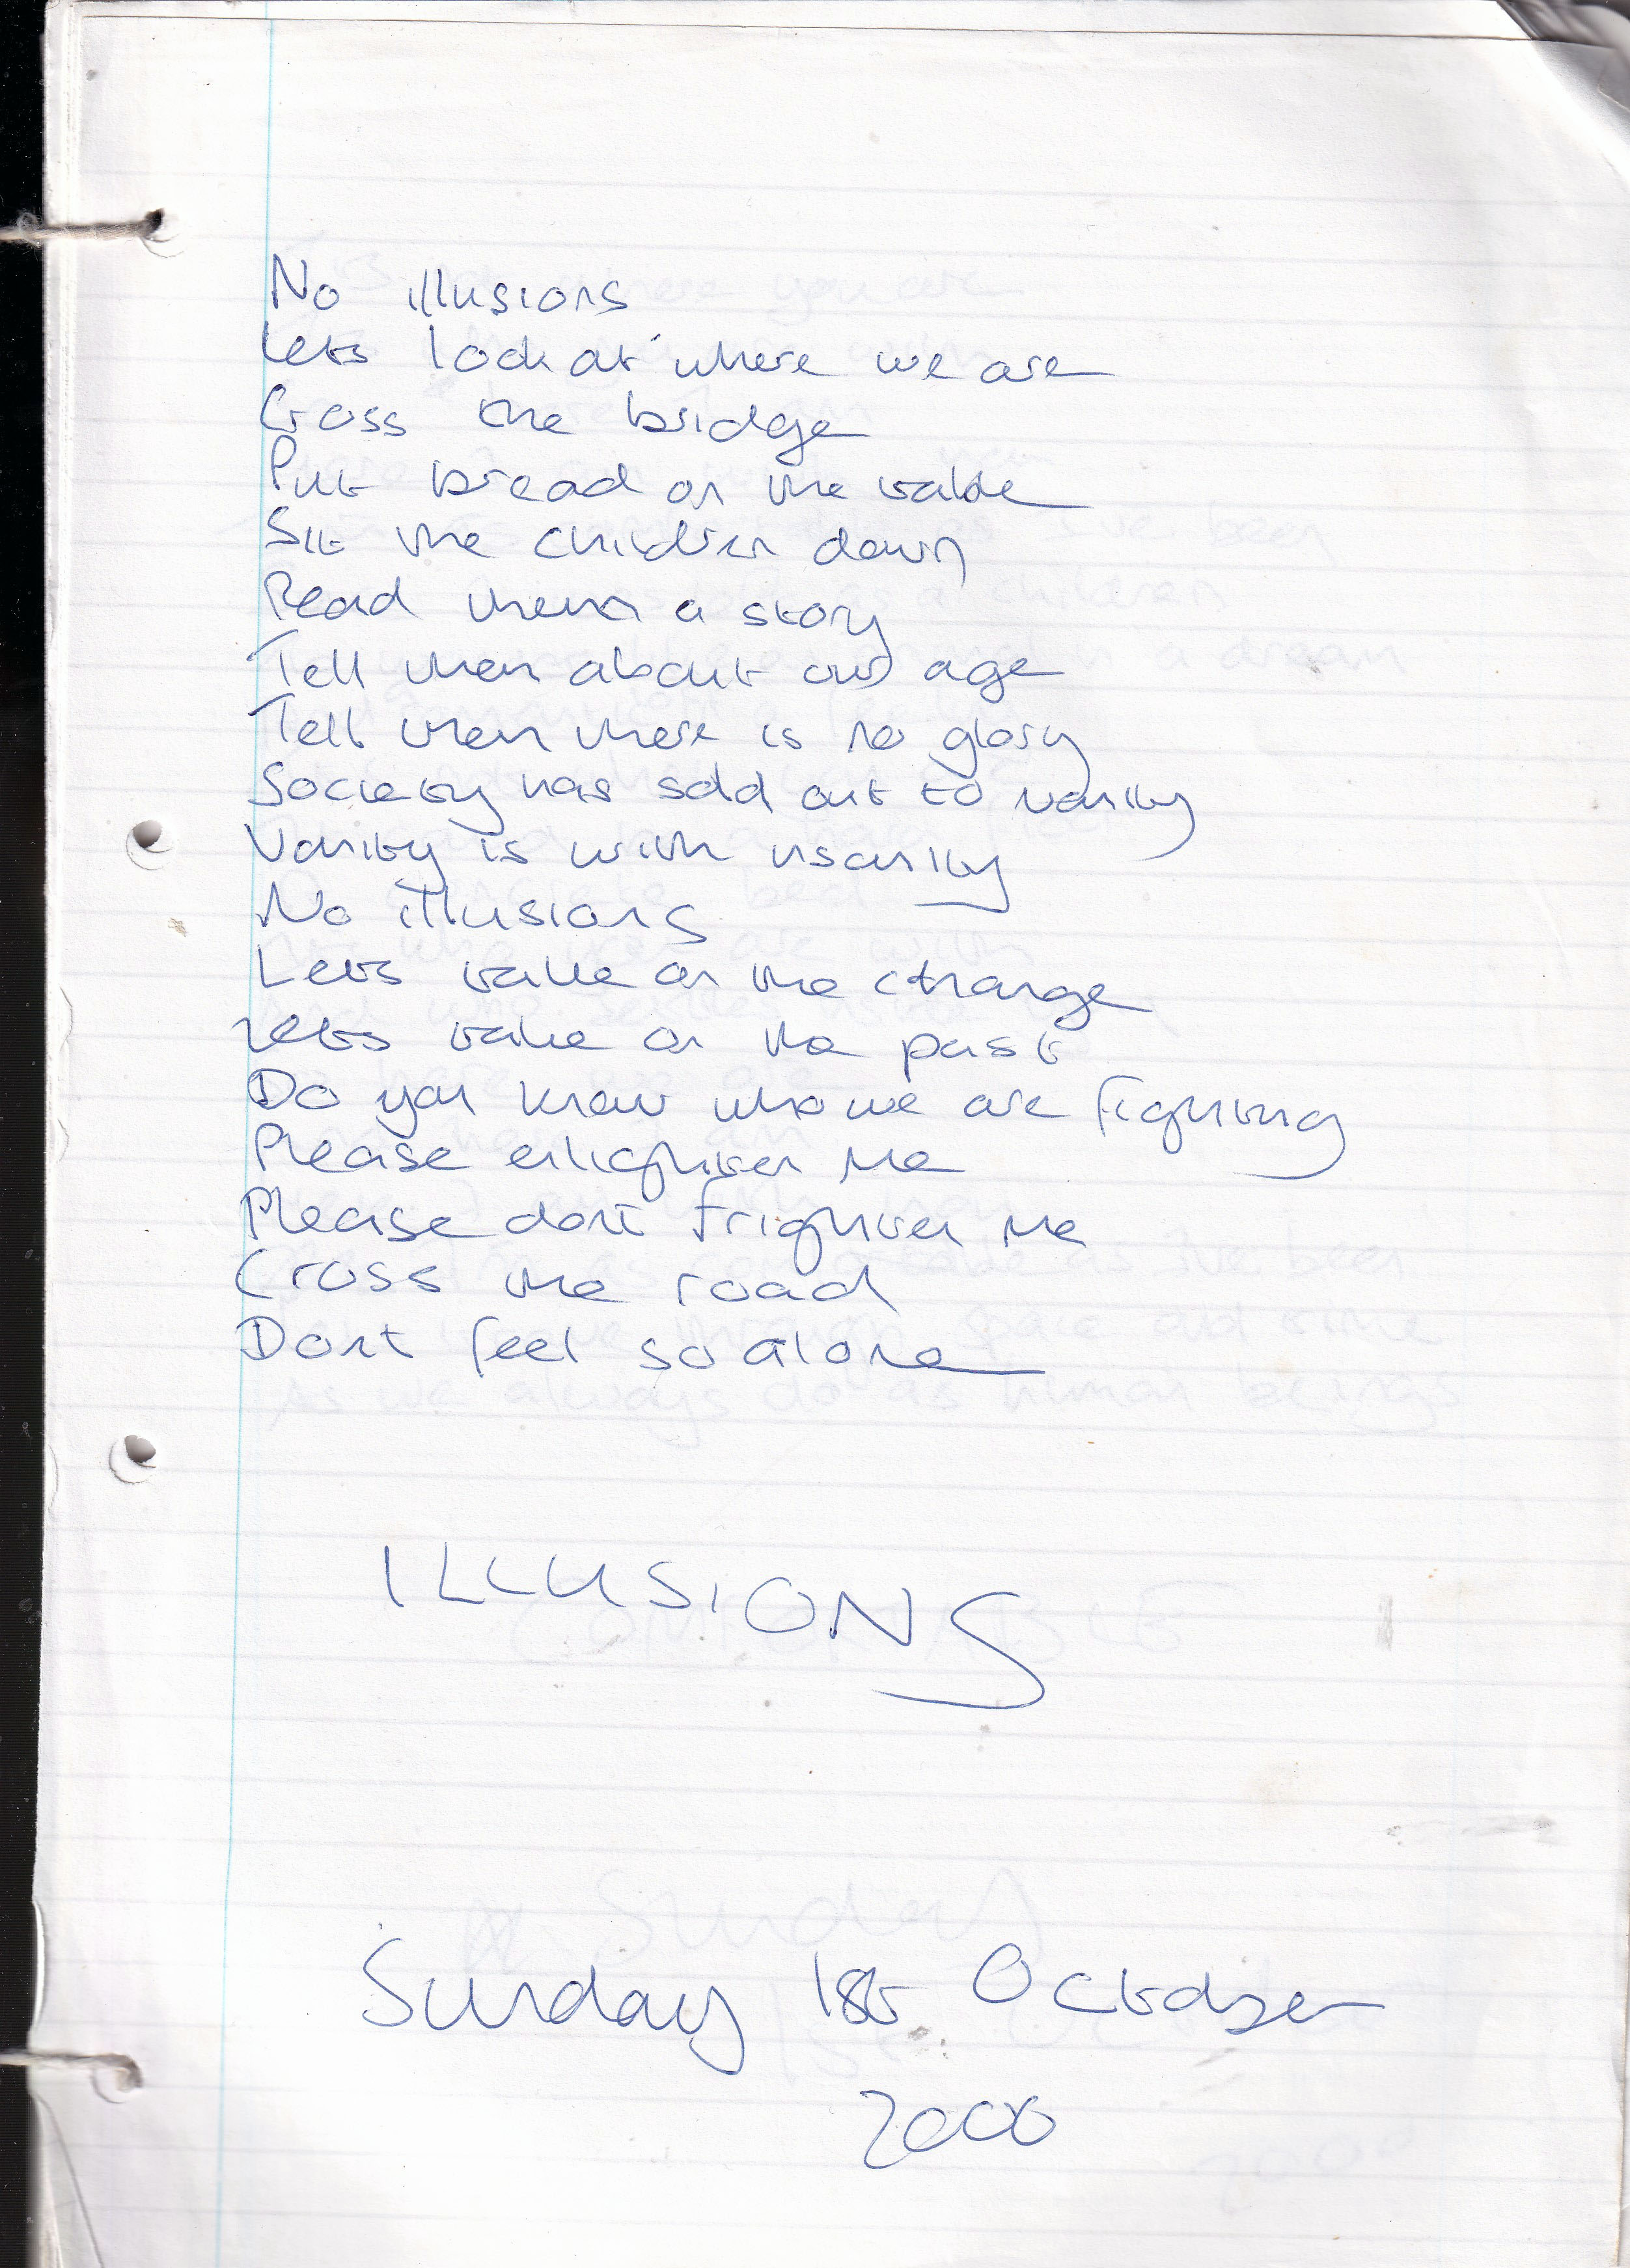 No illusions
Lets look at where we are
Cross the bridge
Put bread on the table
Sit the children down
Read them a story
Tell them about our age
Tell them there is no glory
Society has sold out to vanity
Vanity is with insanity
No illusions
Lets take on the change
Lets take on the past
Do you know who we are fighting
Please enlighten me
Please dont frighten me
Cross the road
Dont feel so alone
ILLUSIONS
Sunday 1st October
2000